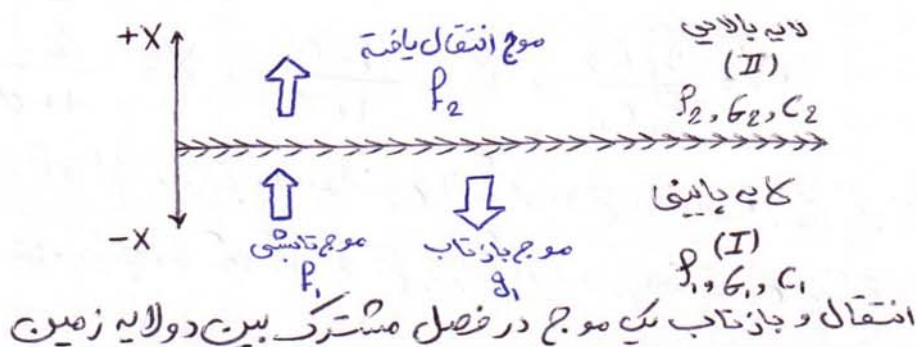 +X
موج انتقال یافته
f₂
لایه بالایی
(II)
ρ₂, G₂, C₂
-X
موج تابشی
f₁
موج بازتاب
g₁
لایه پایینی
(I)
ρ₁, G₁, C₁
انتقال و بازتاب یک موج در فصل مشترک بین دو لایه زمین